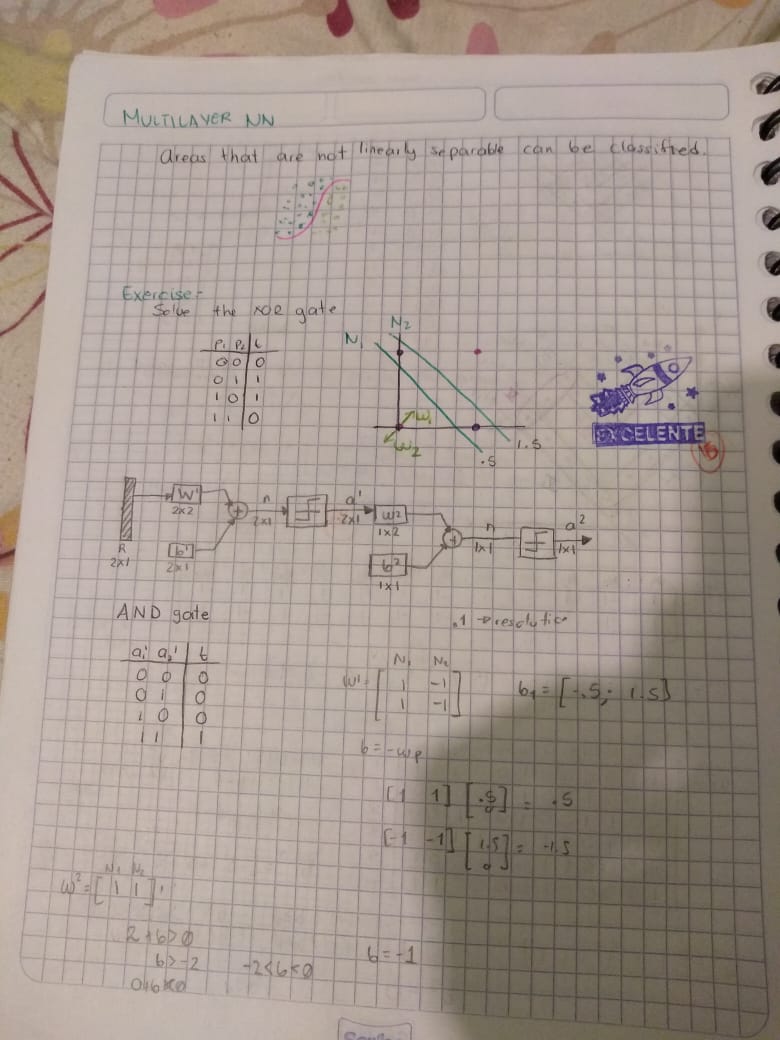 MULTILAYER NN
Areas that are not linearly separable can be classified.
Exercise:-
Solve the XOR gate
P₁ P₂ t
0 0 0
0 1 1
1 0 1
1 1 0
N₁
N₂
W₁
W₂
.5
1.5
EXCELENTE
W¹
2x2
n
2x1
a¹
2x1
W²
1x2
n
1x1
a²
1x1
R
2x1
b¹
2x1
b²
1x1
AND gate
.1 →
a₁¹ a₂¹ t
0 0 0
0 1 0
1 0 0
1 1 1
N₁ N₂
W¹ = [1 -1
1 -1]
b₁ = [-.5; 1.5]
b = -wp
[1 1] [.5
0] = .5
[-1 -1] [1.5
0] = -1.5
N₁ N₂
W² = [1 1]
2+b>0
b>-2
-2<b<0
b=-1
0+b<0